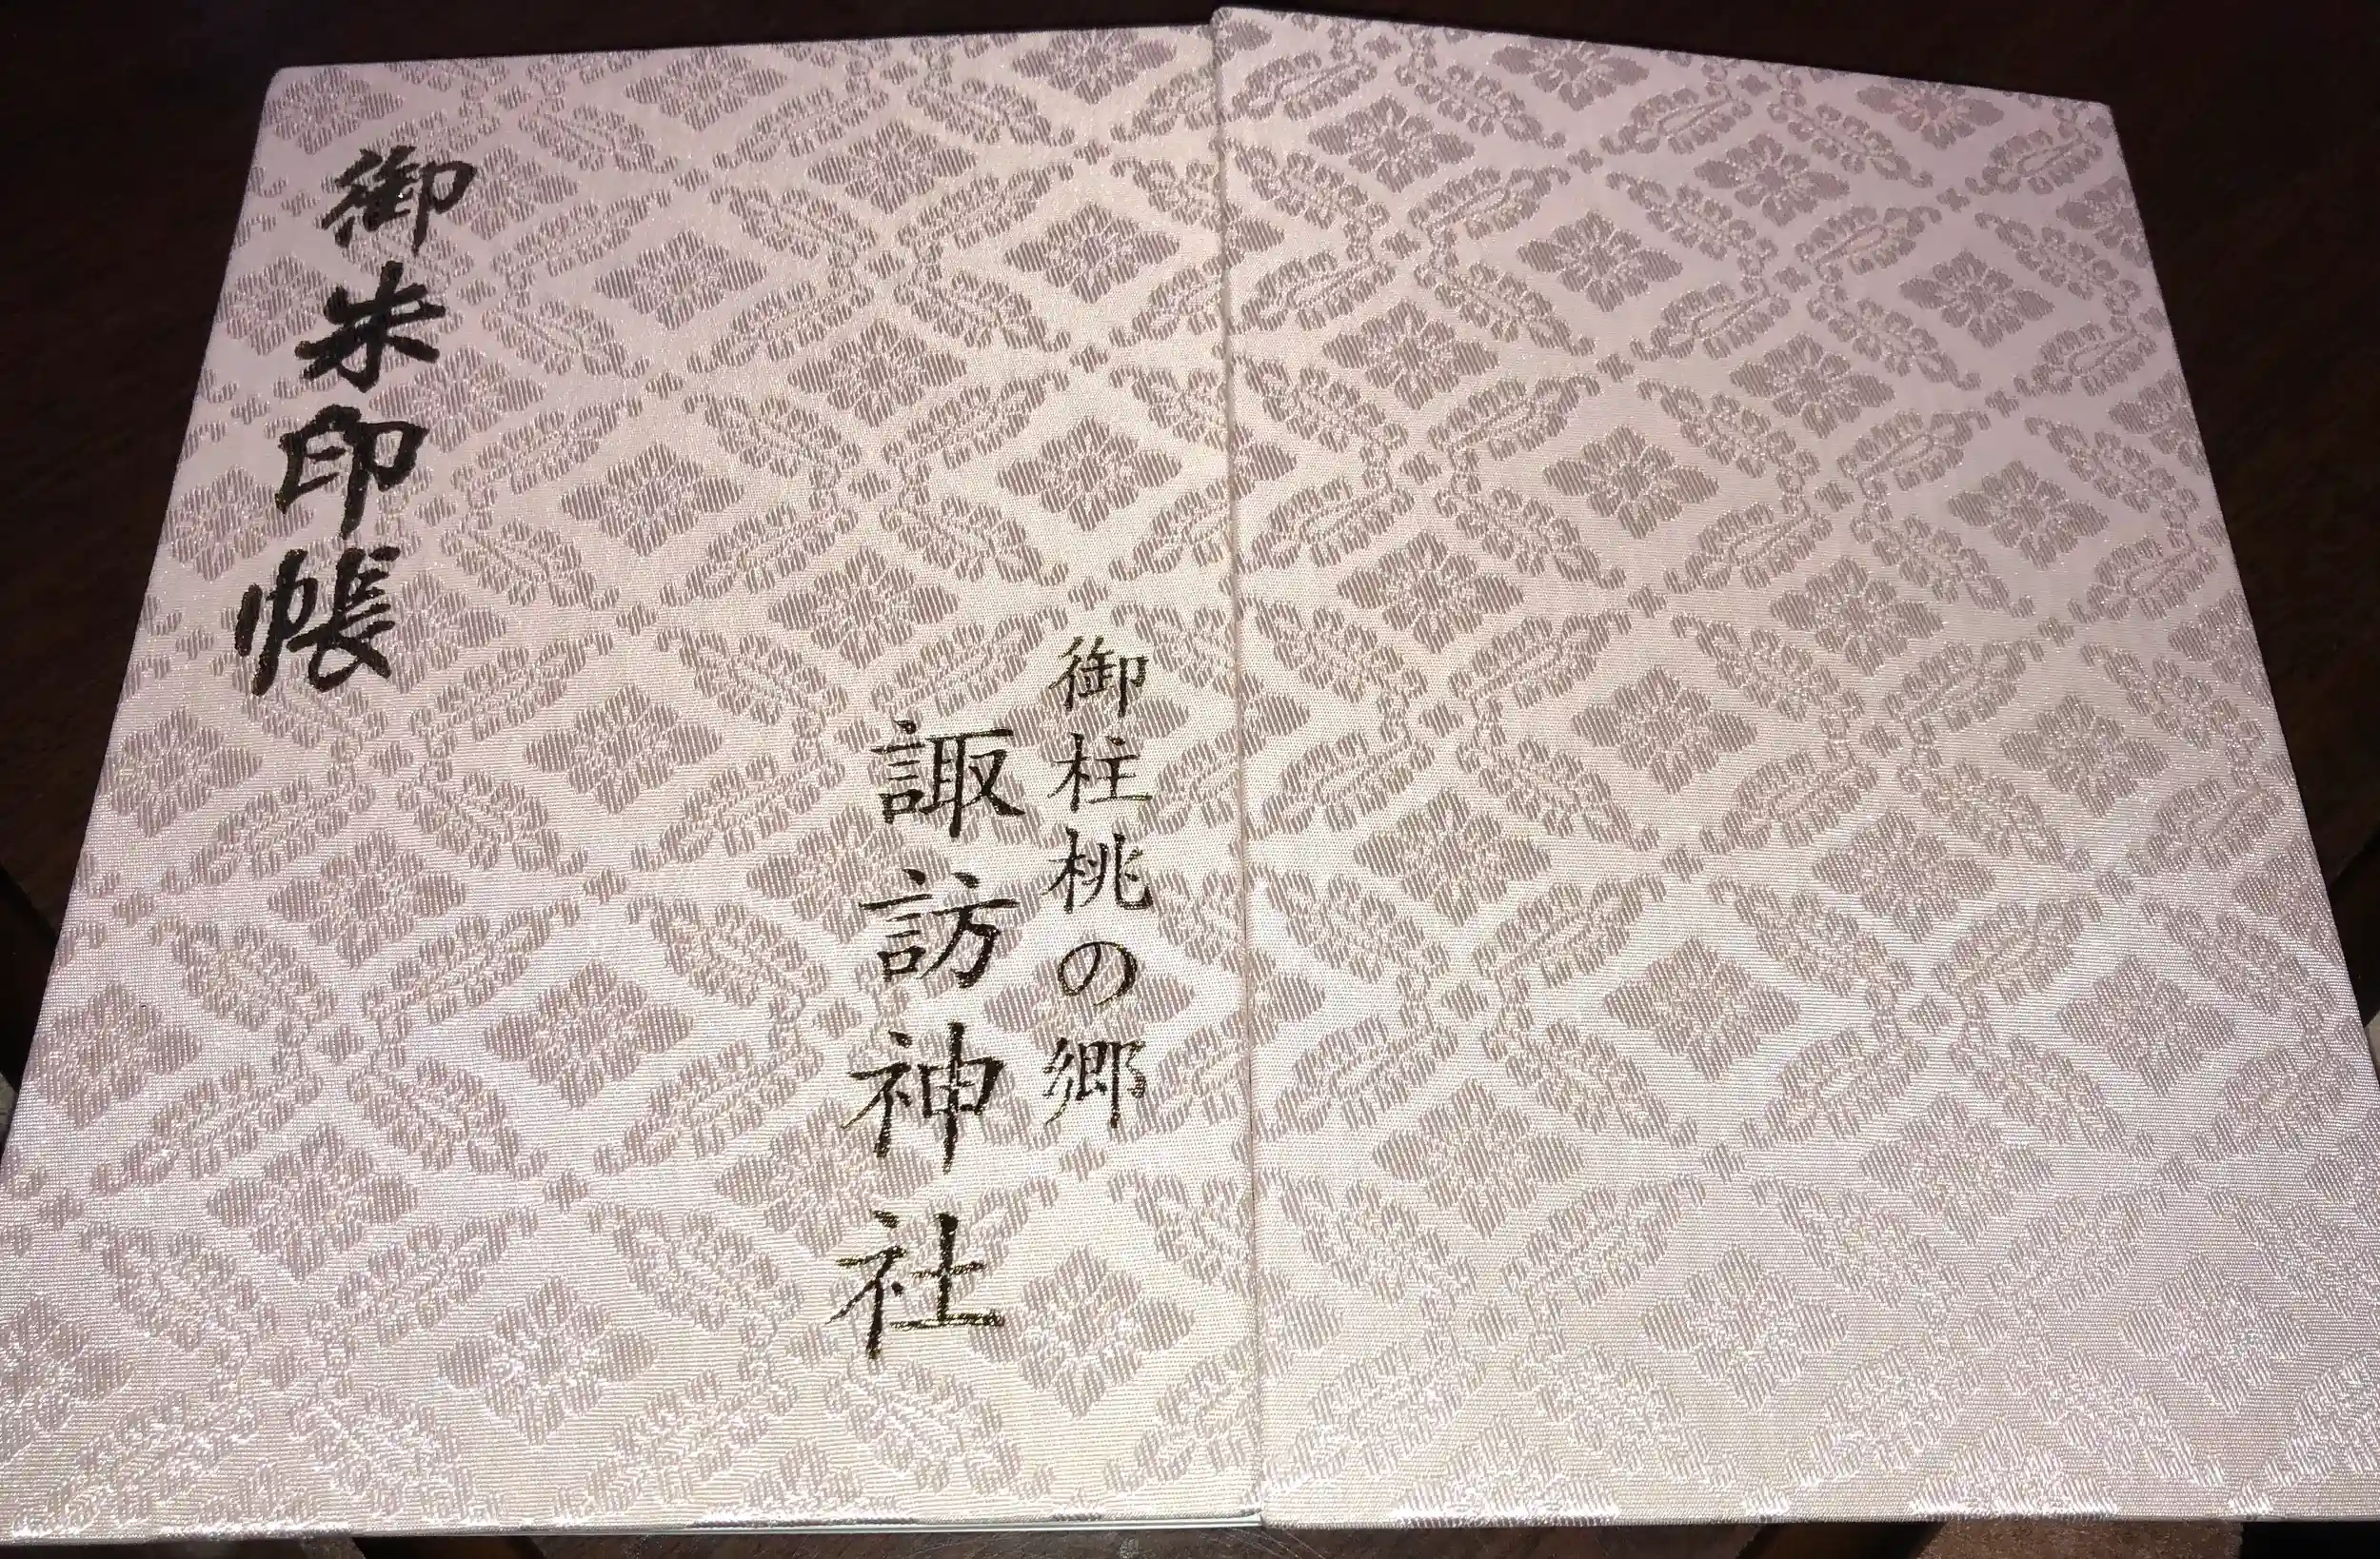 御柱桃の郷
諏訪神社
御朱印帳